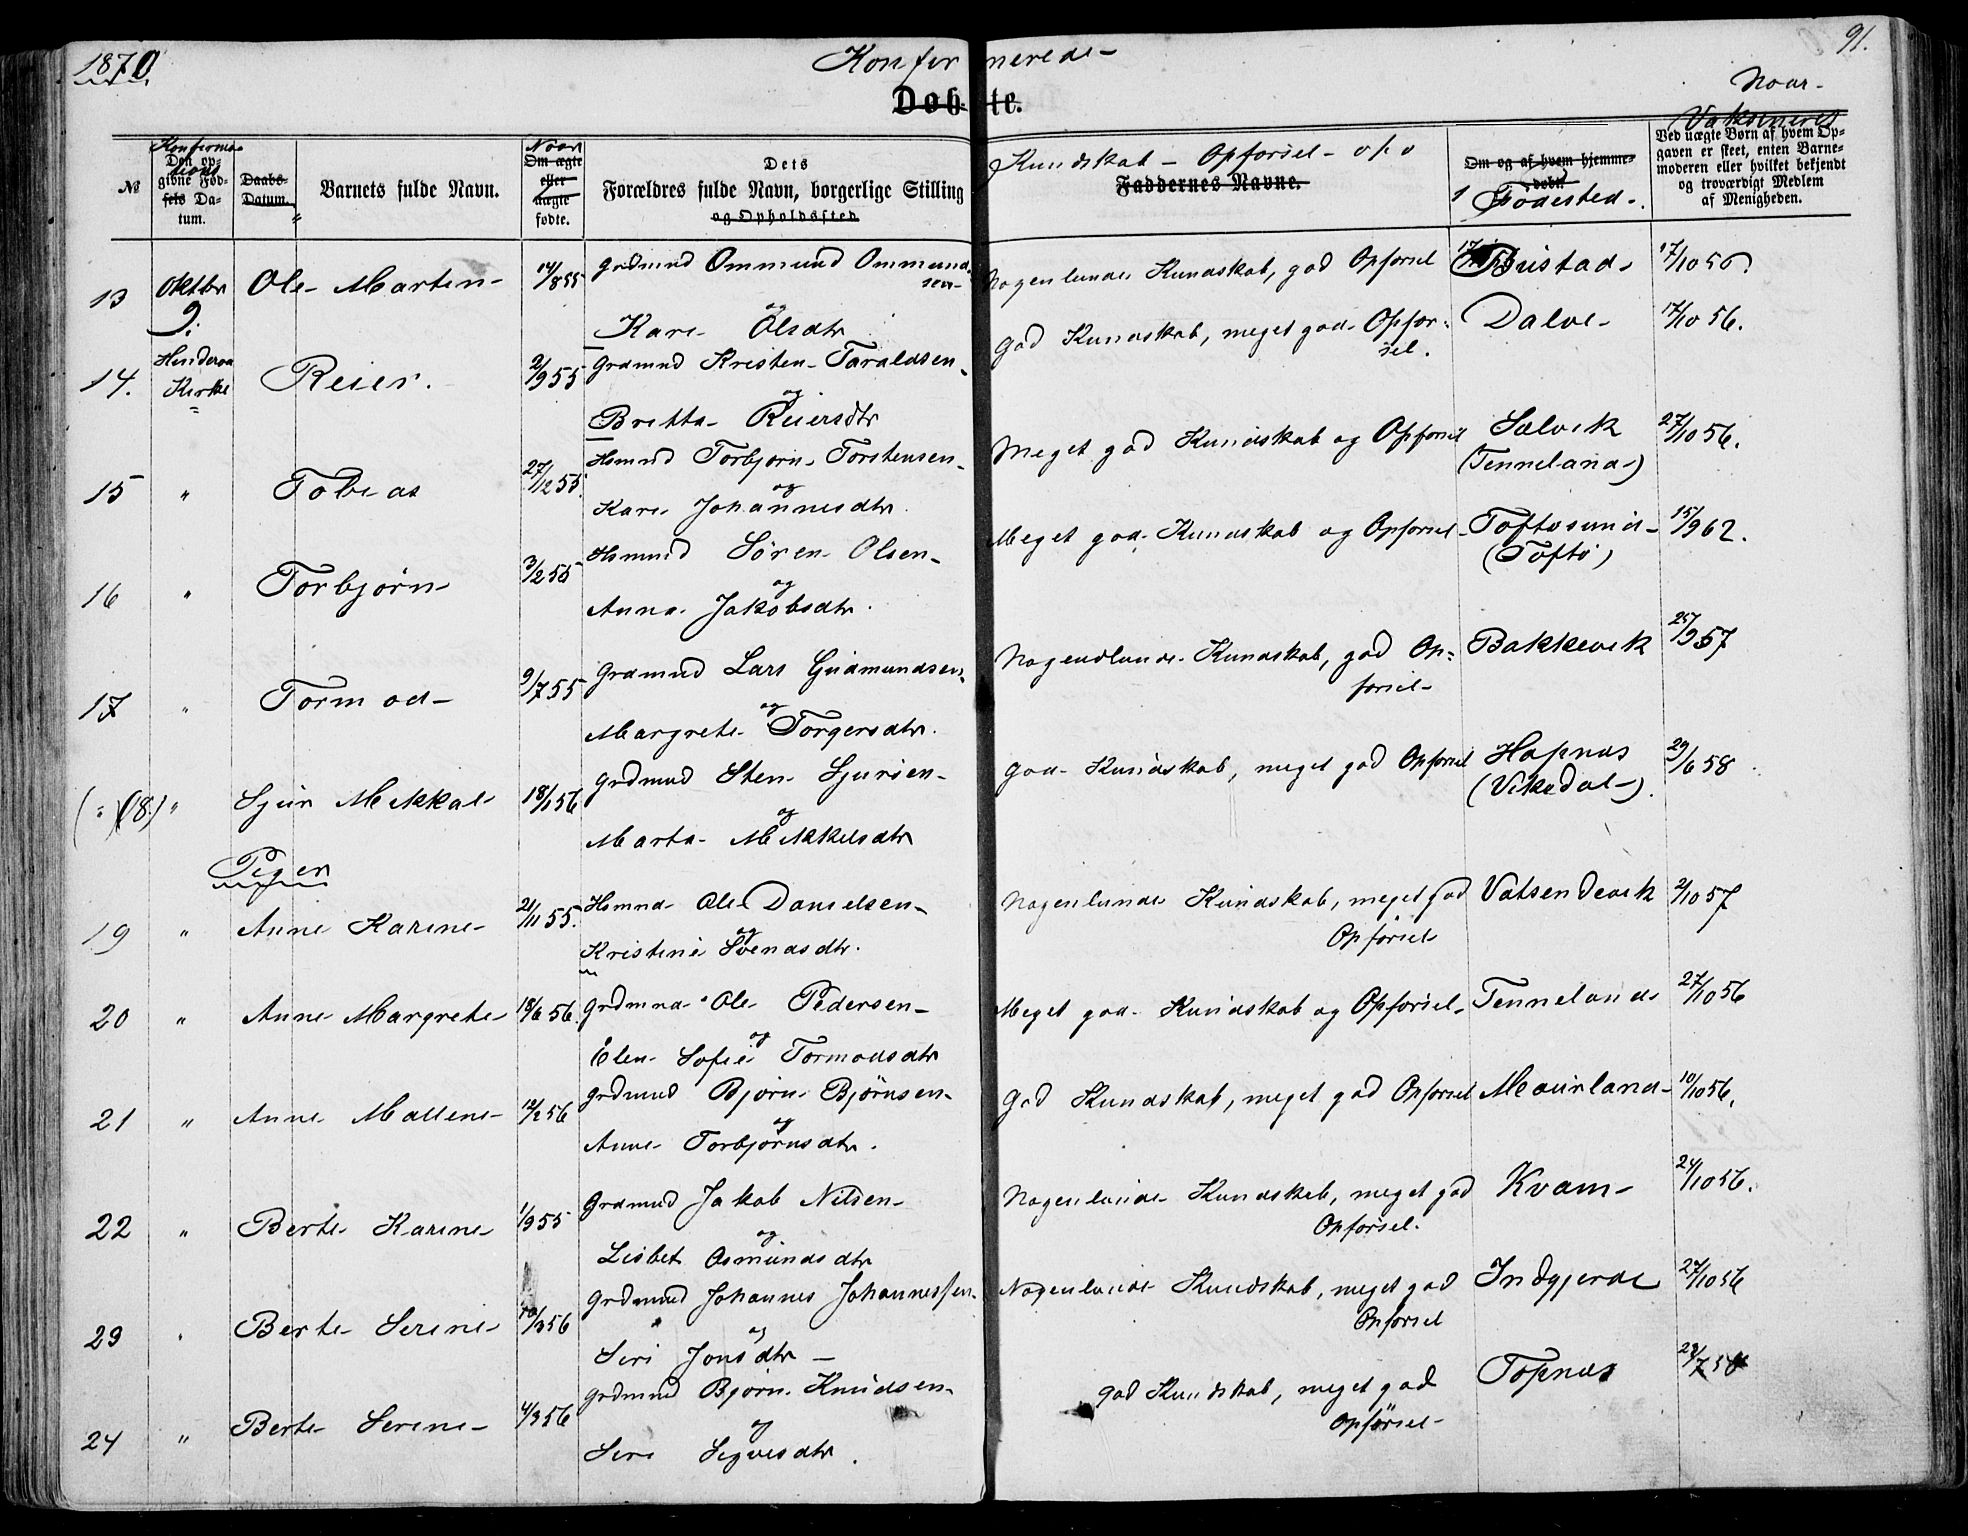 1870.
Konfirmerede-
91.
Døbte.
Naar-
Vaksineret
№
Konfirma-
tions
Den op-
givne Fød-
sels Da-
tum.
Daabs-
Datum.
Barnets fulde Navn.
Naar
Om ægte
eller
uægte
fødte.
Dets
Forældres fulde Navn, borgerlige Stilling
og Opholdssted
Kundskab - Opførsel - o/o
Faddernes Navne.
Om og af hvem hjemme-
døbt.
Fødested-
Ved uægte Børn af hvem Op-
gaven er skeet, enten Barne-
moderen eller hvilket bekjendt
og troværdigt Medlem
af Menigheden.
13 Oktbr 9. Ole Martin- 14/8 55 Grdmnd Ommund Ommund-
sen-
og
Kari Olsdtr
Nogenlunde Kundskab, god Opførsel Bustad- 17/10 56
14. Hinderaa Kirke Reier. 2/9 55 Grdmnd Kristen Taraldsen-
og
Britta Reiersdtr
God Kundskab, meget god Opfør-
sel.
Dalve- 17/10 56.
15 " Tobias 27/12 55. Hsmnd Torbjørn Torstensen-
og
Kari Johannesdtr.
Meget god Kundskab og Opførsel Sælvik
(Tenneland) 27/10 56.
16 " Torbjørn- 3/2 56 Hsmnd Søren Olsen-
og
Anna Jakobsdtr.
Meget god Kundskab og Opførsel- Toftøsund-
(Toftø) 15/9 62.
17 " Tormod- 9/7 55 Grdmnd Lars Gudmundsen-
og
Margrete Torgersdtr.
Nogenlunde Kundskab, god Op-
førsel-
Bakkevik 25/9 57
(18) " Sjur Mikkal- 18/1 56 Grdmnd Sten Sjursen-
og
Marta Mikkelsdtr
God Kundskab, meget god Opførsel Hapnes
(Vikedal-). 29/6 58
Piger
19 " Anne Karine- 21/11 55. Hsmnd Ole Danielsen-
og
Kristine Svendsdtr.
Nogenlunde Kundskab, meget god
Opførsel
Vatsendevik 2/10 57
20 " Anne Margrete- 18/6 56. Grdmnd Ole Pedersen-
og
Elen Sofie Tormodsdtr
Meget god Kundskab og Opførsel- Tenneland 27/10 56
21 " Anne Mallene- 12/2 56 Grdmnd Bjørn Bjørnsen-
og
Anne Torbjørnsdtr.
God Kundskab, meget god Opførsel Meurland- 10/10 56.
22 " Berte Karine- 1/9 55 Grdmnd Jakob Nilsen-
og
Lisbet Osmundsdtr
Nogenlunde Kundskab, meget god
Opførsel.
Kvam- 24/10 56.
23 " Berte Serine- 10/3 56 Grdmnd Johannes Johannessen-
og
Siri Jonsdtr-
Nogenlunde Kundskab, meget god
Opførsel
Indgjerde 27/10 56
24 " Berte Serine- 4/3 56 Grdmnd Bjørn Knudsen-
og
Siri Sigvesdtr.
god Kundskab, meget god
Opførsel-
Topnes 29/7 58